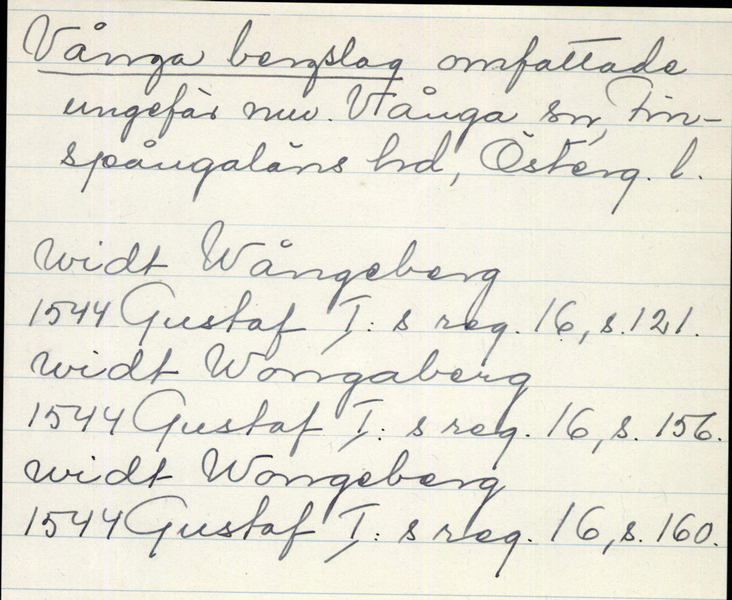 Vånga bergslag omfattade
ungefär nuv. Vånga sn, Fin-
spångaläns hrd, Österg. l.
widt Wångeberg
1544 Gustaf I: s reg. 16, s. 121.
widt Wongaberg
1544 Gustaf I: s reg. 16, s. 156.
widt Wongeberg
1544 Gustaf I: s reg. 16, s. 160.